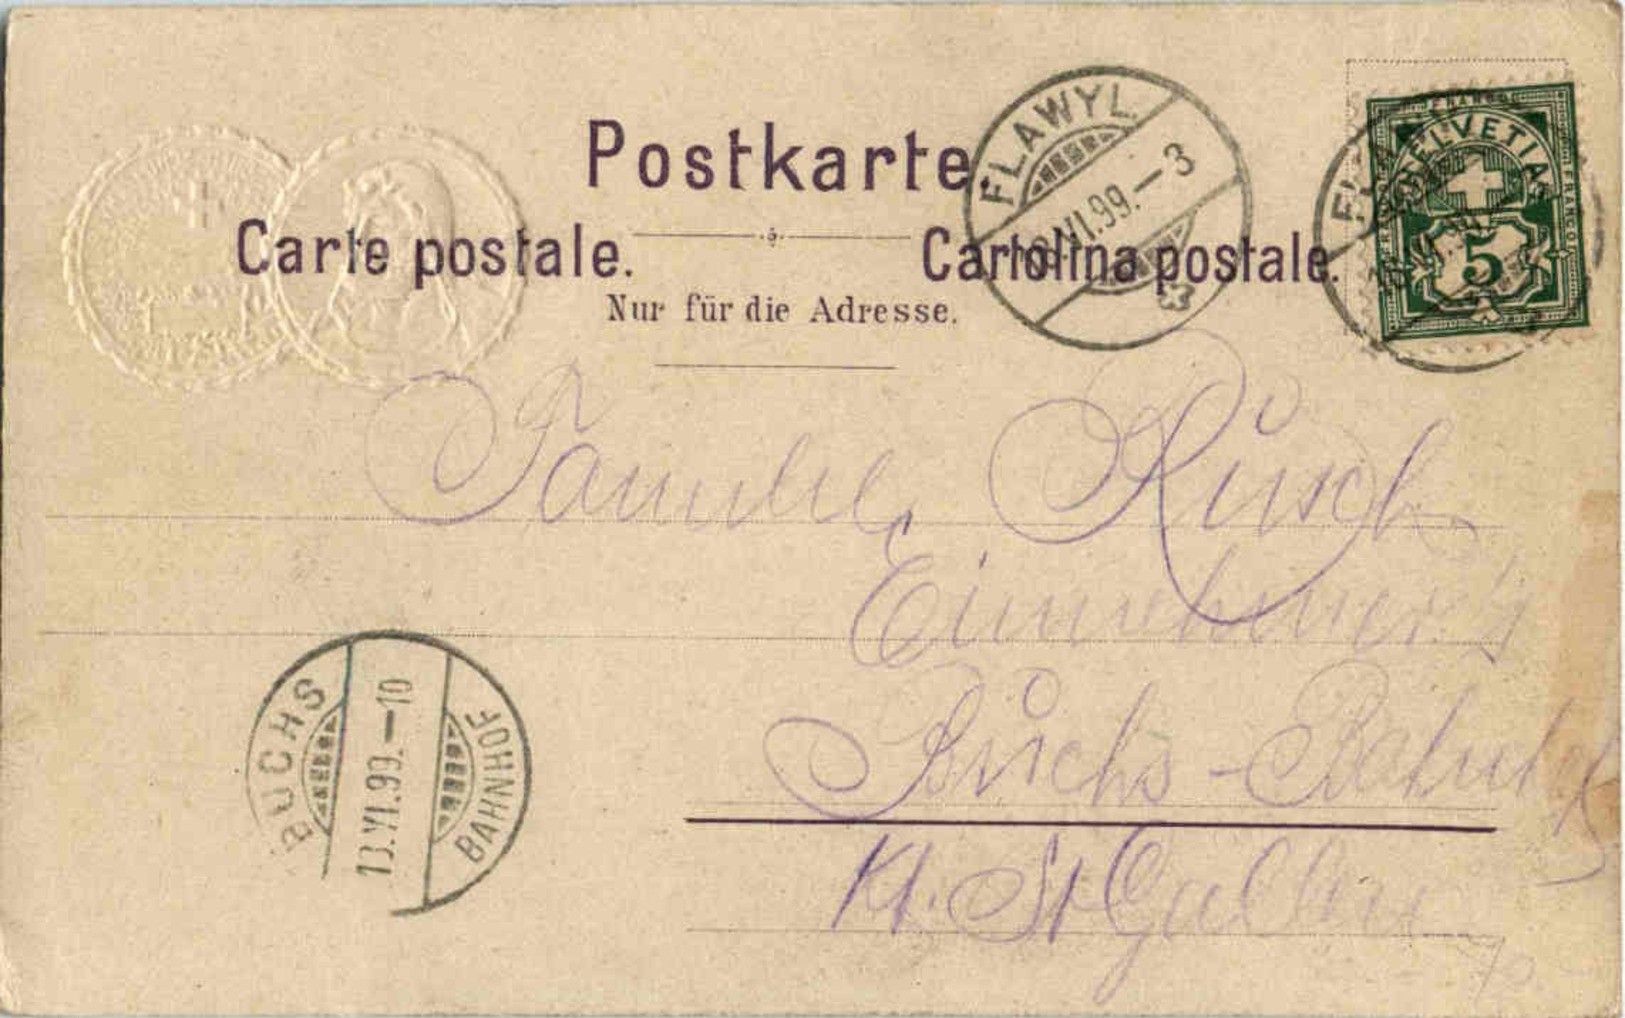 Postkarte
Carte postale. Cartolina postale.
Nur für die Adresse.
FLAWYL
VI.99.—3
FRANCO
HELVETIA
FRANCO
5
Familie Rüsch
Einnehmer's
Buchs-Bahnhof
Kt. St Gallen
BUCHS
13.VI.99.—10
BAHNHOF